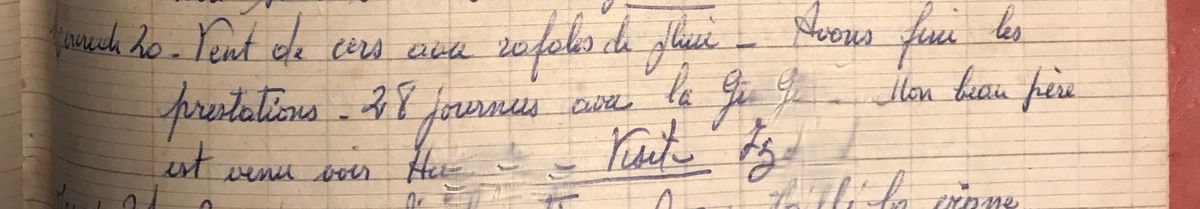 Mercredi 20 - Vent de cers avec rafales de pluie - Avons fini les
prestations - 28 journées avec la - Mon beau père
est venu voir Visite
la vigne